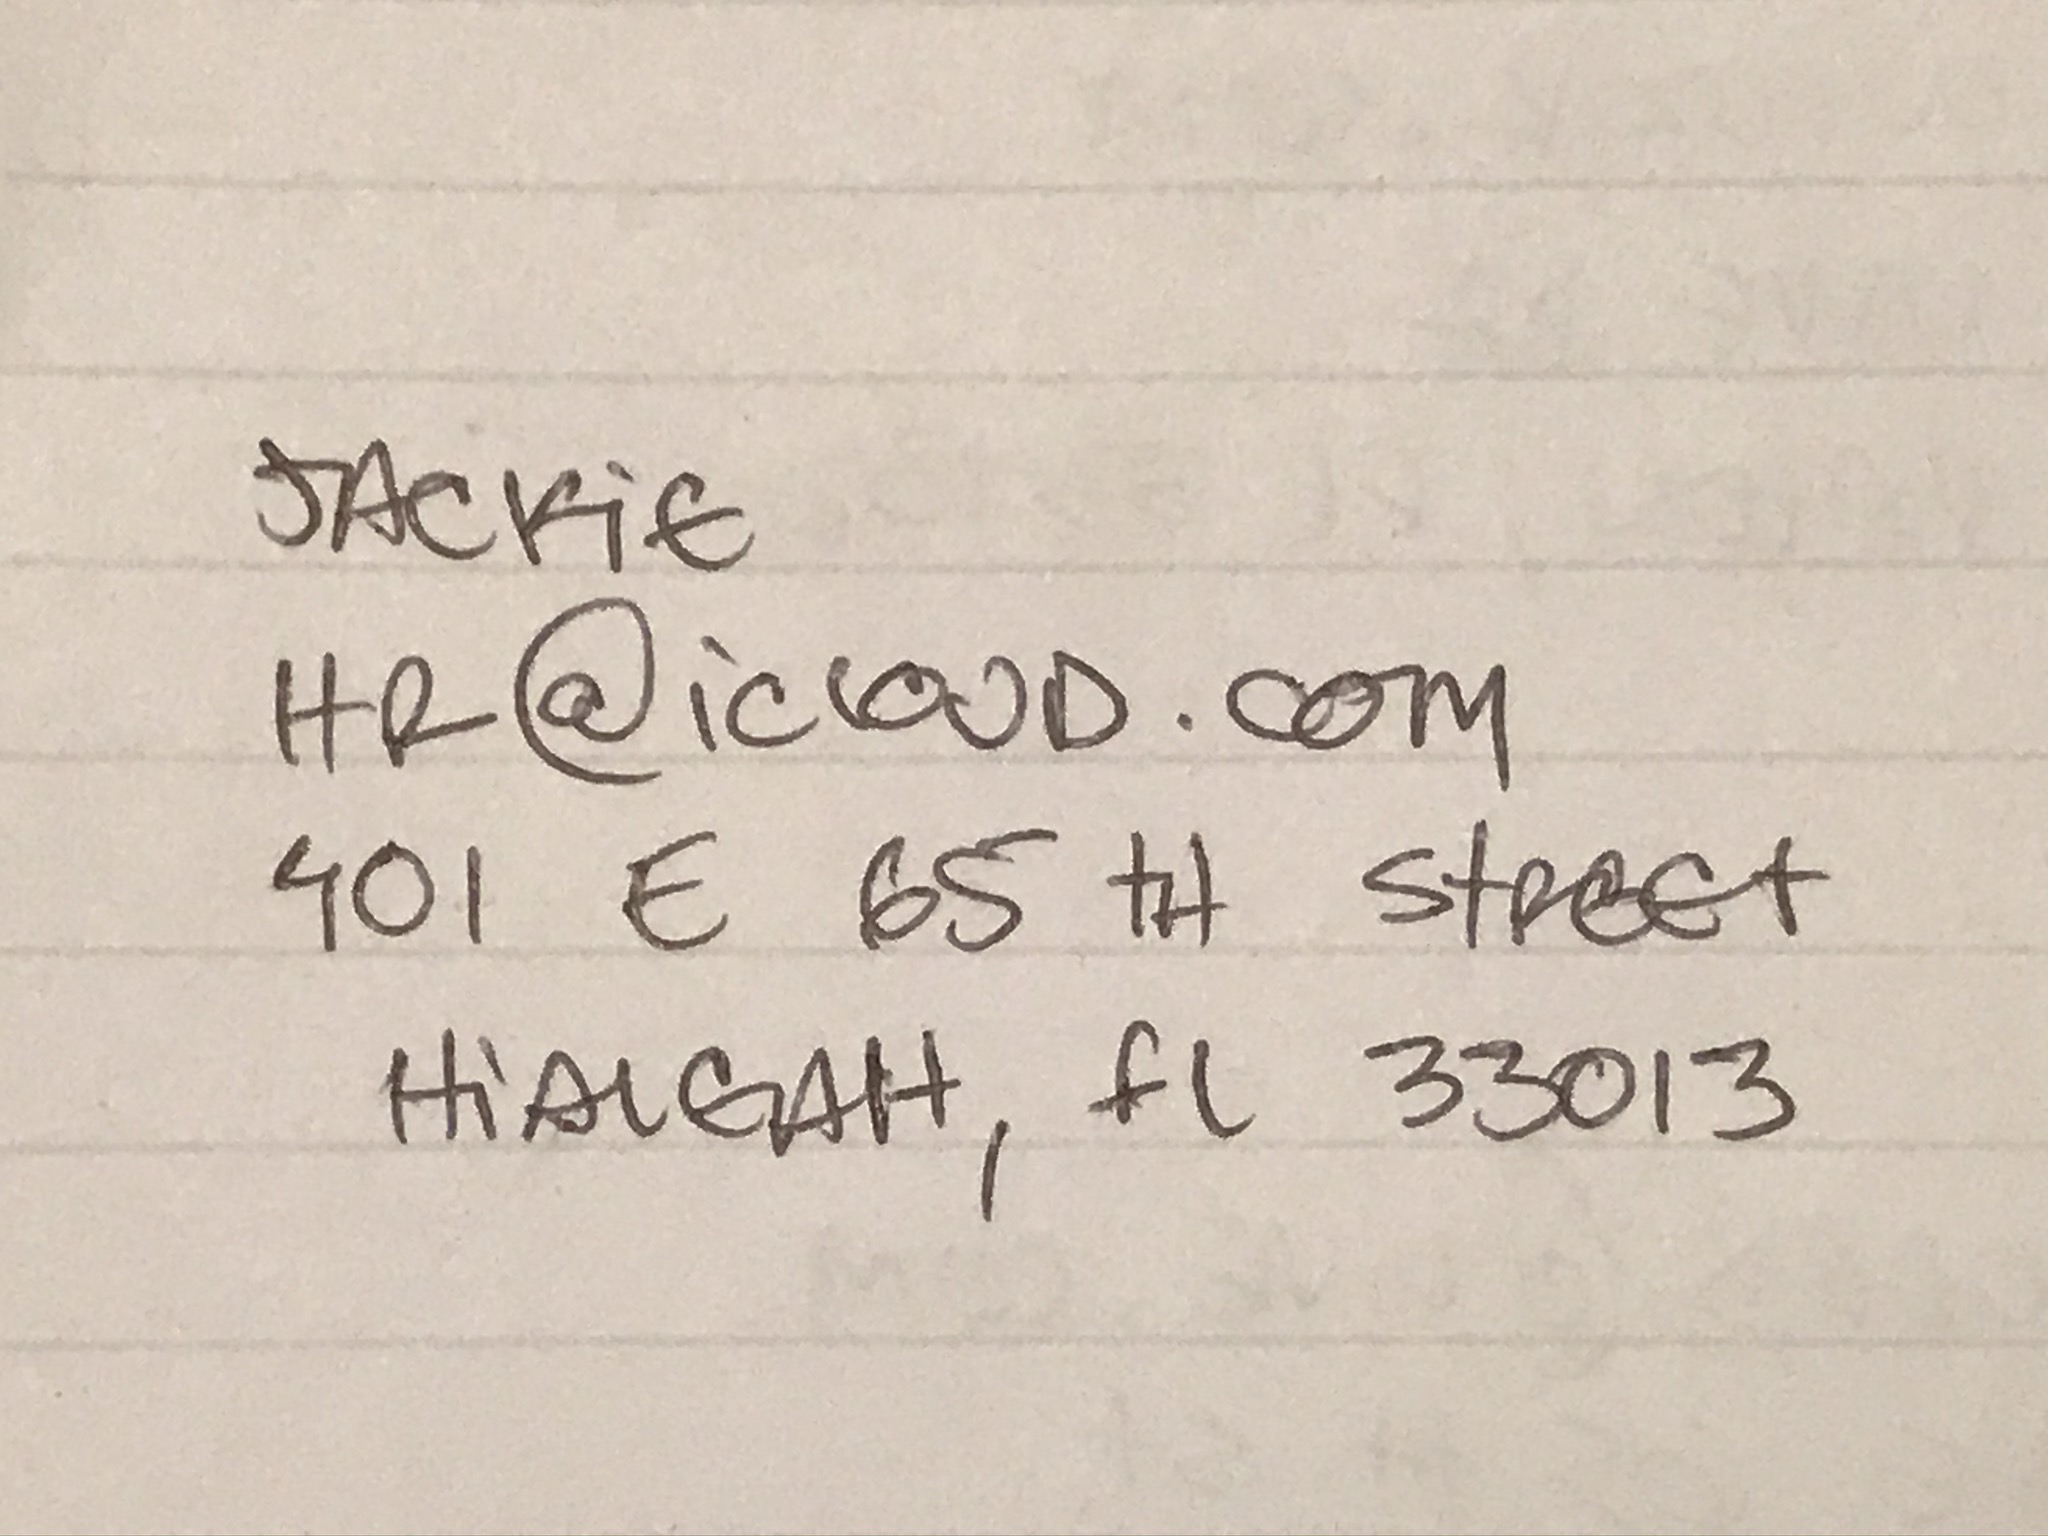 JACKiE
HR@iCLOUD.COM
401 E 65 tH StREEt
HiALEAH, fL 33013